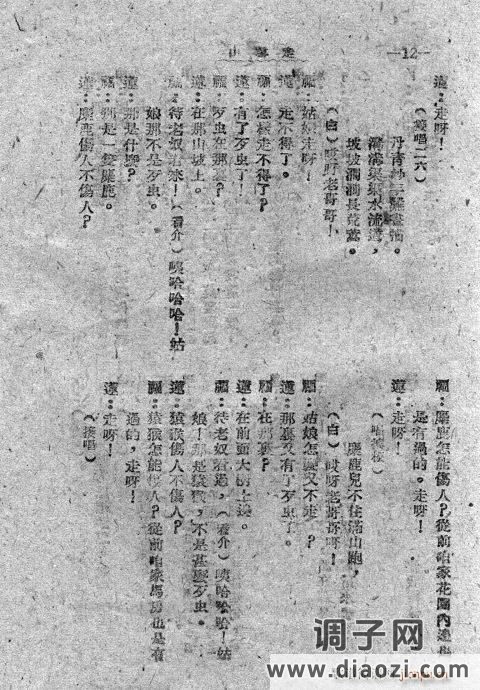 走雪山
—12—
蓮：走呀！
（接唱二六）
丹青
水流
玻玻澗澗長
（白）哎呀老哥哥！
福：姑娘走呀！
蓮：走不得了。
福：怎樣走不得了？
蓮：有了歹虫了！
福：歹虫在那裏？
蓮：在那山坡上。
福：待老奴看來！（看介）咦哈哈哈！姑
娘那不是歹虫。
蓮：那是什麼？
福：那是一隻麋鹿。
蓮：麋鹿傷人不傷人？
福：麋鹿怎能傷人？從前咱家花園內達也
是有過的。走呀！
蓮：走呀！
麋鹿兒不住滿山跑，
（白）哎呀老哥哥呀！
福：姑娘怎麼又不走？
蓮：那裏又有了歹虫了。
福：在那裏？
蓮：在前面大樹上哩。
福：待老奴看過，（看介）咦哈哈哈！姑
娘！那是猿猴，不是甚麼歹虫。
蓮：猿猴傷人不傷人？
福：猿猴怎能傷人？從前咱家馬房也是有
過的，走呀！
蓮：走呀！
（接唱）
调子网
www.diaozi.com